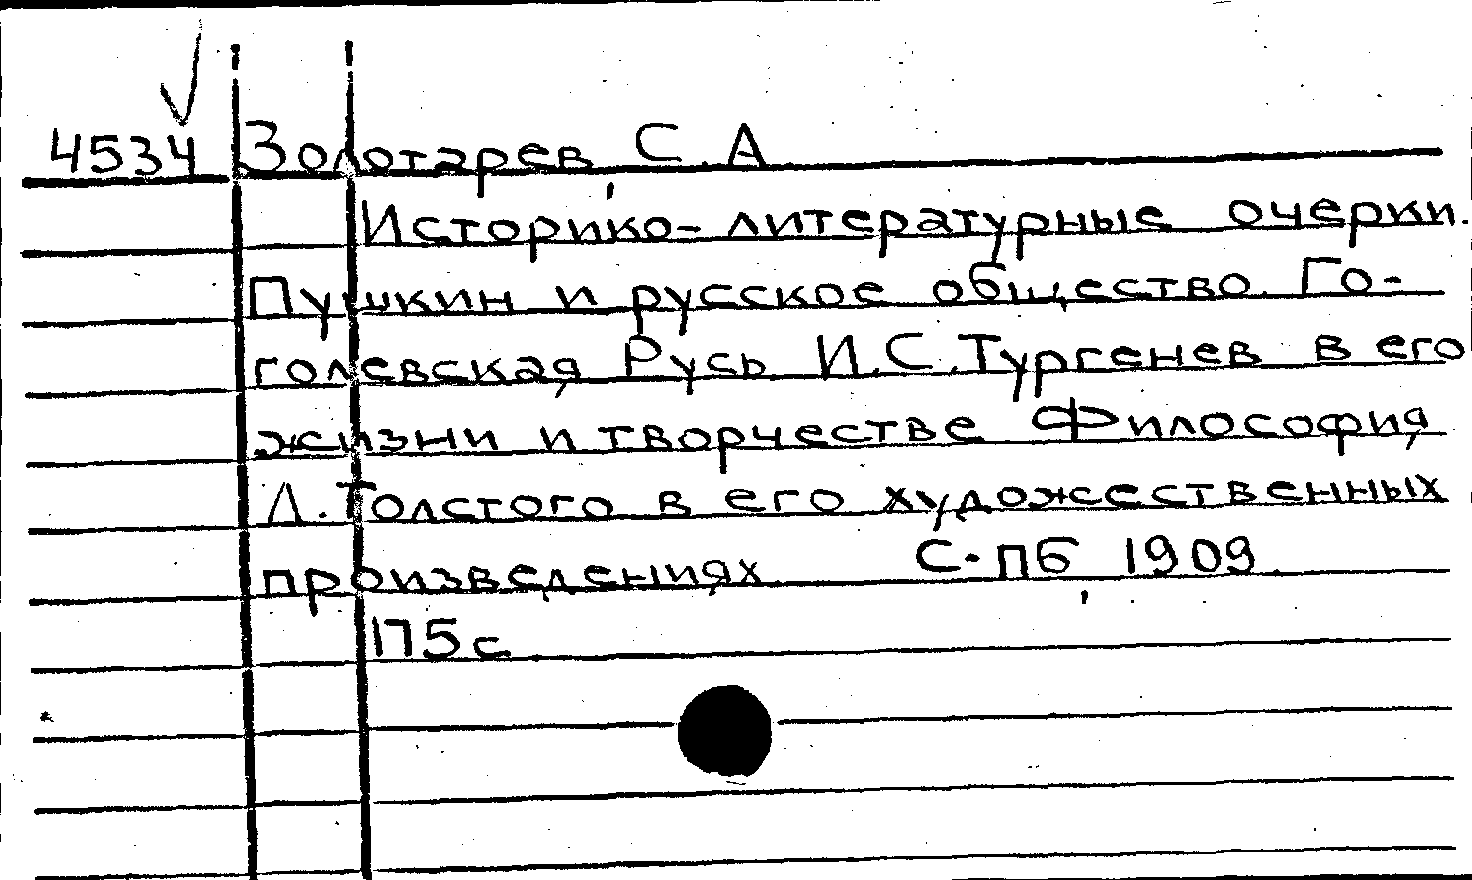 4534 Золотарев, С.А.
Историко-литературные очерки.
Пушкин и русское общество. Го-
голевская Русь И.С.Тургенев в его
жизни и творчестве Философия
Л.Толстого в его художественных
произведениях С-пб, 1909.
175 с.